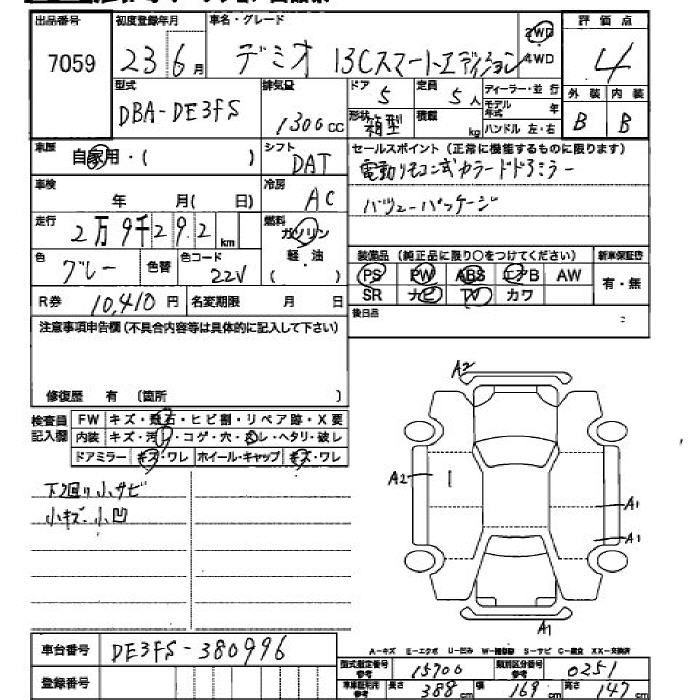 出品番号 初度登録年月 車名・グレード 2WD 評価点
7059 23 6月 デミオ 13Cスマートエディション 4WD 4
型式 排気量 ドア 5 定員 5人 ディーラー・並行 外装 内装
DBA-DE3FS 1300cc 形状 箱型 積載 kg モデル年式 年 ハンドル 左・右 B B
車歴 自家用・( ) シフト DAT セールスポイント(正常に機能するものに限ります)
電動リモコン式カラードドアミラー
車検 年 月( 日) 冷房 AC バリューパッケージ
走行 2万9千292km 燃料 ガソリン 軽・油 ( )
装備品(純正品に限り○をつけてください) 新車保証書
色 グレー 色替 色コード 22V PS PW ABS エアB AW 有・無
R券 10,410円 名変期限 月 日 SR ナビ TV カワ
注意事項申告欄(不具合内容等は具体的に記入して下さい) 後日品
修復歴 有 (箇所 )
検査員 FW キズ・飛石・ヒビ割・リペア跡・X要
記入欄 内装 キズ・汚レ・コゲ・穴・スレ・ヘタリ・破レ
ドアミラー キズ・ワレ ホイール・キャップ キズ・ワレ
下廻り小サビ
小キズ 小凹
A2
A2
A1
A1
A1
車台番号 DE3FS-380996
A-キズ E-エクボ U-凹み S-サビ C-腐食 XX-交換済
登録番号 型式指定番号 参考 15700 類別区分番号 参考 0251
車車証形用 参考 長さ 388cm 幅 169cm 高さ 147cm